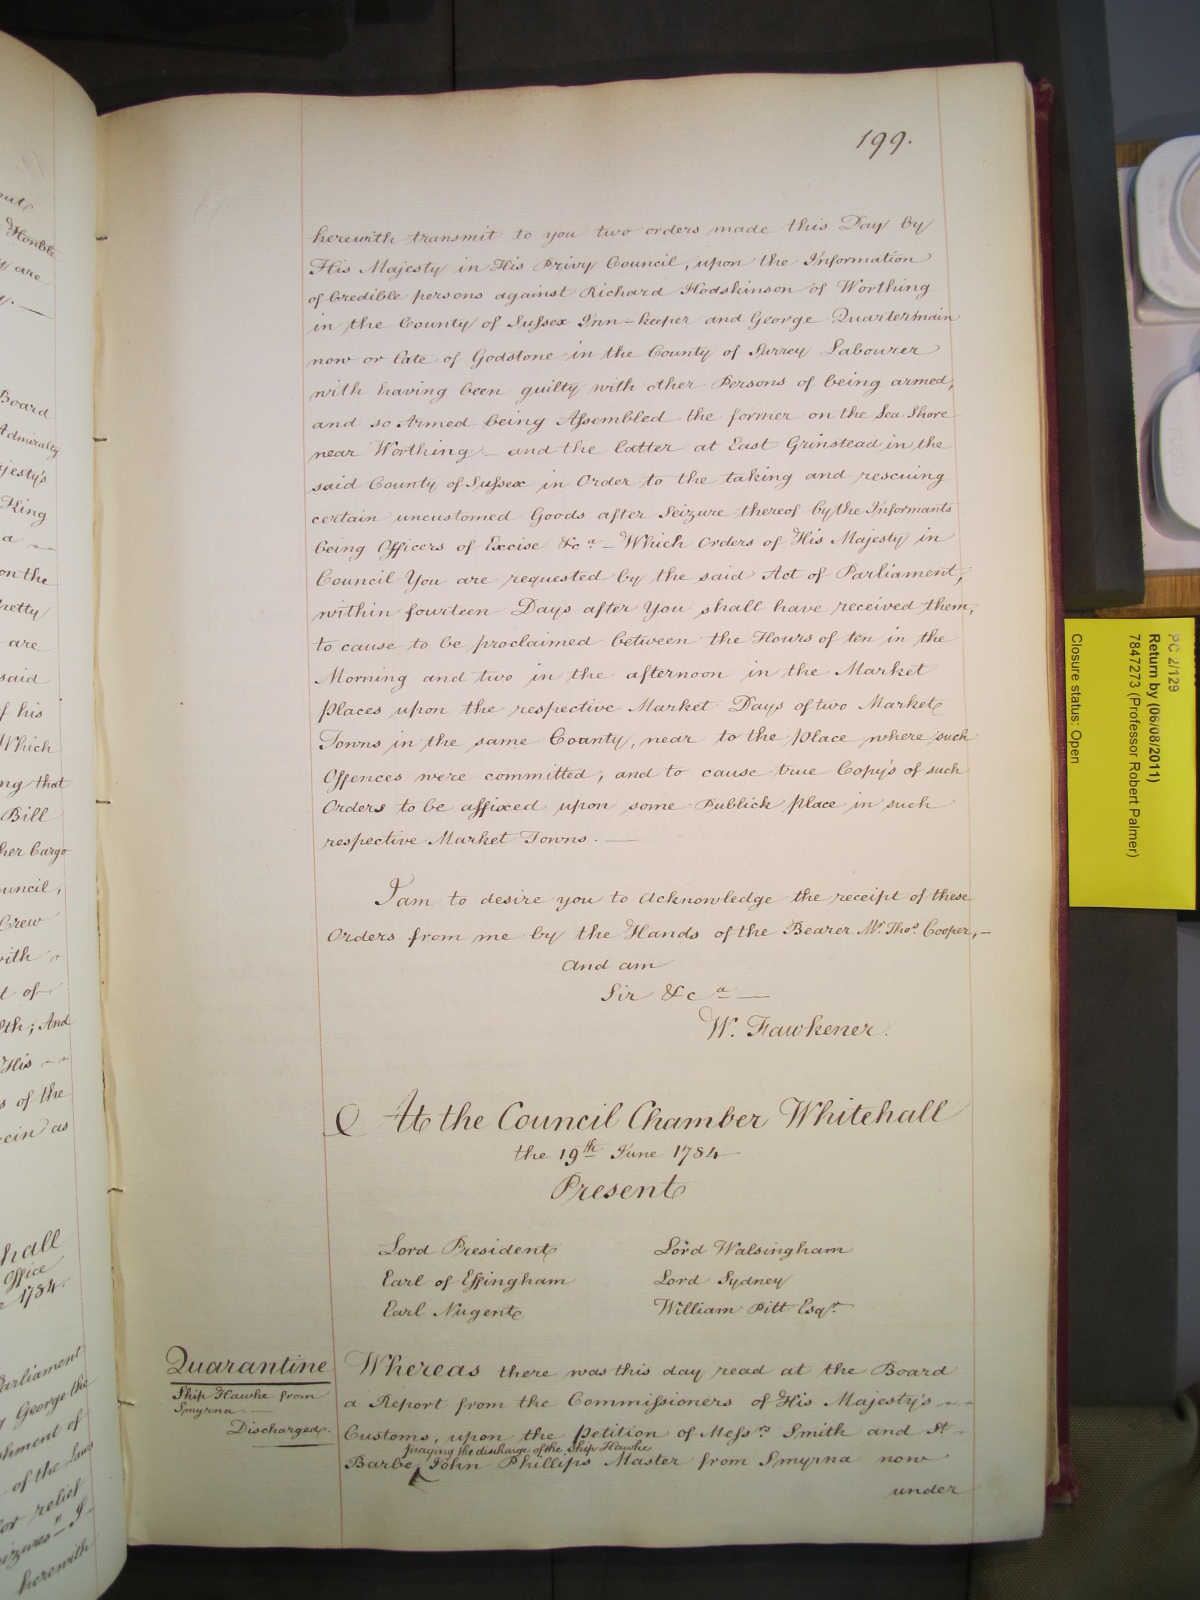 199.
herewith transmit to you two orders made this Day by
His Majesty in His Privy Council, upon the Information
of Credible persons against Richard Hodskinson of Worthing
in the County of Sussex Inn-keeper and George Quartermain
now or late of Godstone in the County of Surrey Labourer
with having been guilty with other Persons of being armed,
and so Armed being Assembled the former on the Sea Shore
near Worthing - and the latter at East Grinstead in the
said County of Sussex in Order to the taking and rescuing
certain uncustomed Goods after Seizure thereof by the Informants
being Officers of Excise &c.a - Which Orders of His Majesty in
Council You are requested by the said Act of Parliament,
within fourteen Days after You shall have received them,
to cause to be proclaimed between the Hours of ten in the
Morning and two in the afternoon in the Market
Places upon the respective Market Days of two Market
Towns in the same County, near to the Place where such
Offences were committed; and to cause true Copy's of such
Orders to be affixed upon some Publick Place in such
respective Market Towns. —
I am to desire you to Acknowledge the receipt of these
Orders from me by the Hands of the Bearer Mr. Thos. Cooper, -
and am
Sir &c a —
W. Fawkener.
At the Council Chamber Whitehall
the 19th June 1784
Present
Lord President
Earl of Effingham
Earl Nugent
Lord Walsingham
Lord Sydney
William Pitt Esqr.
Quarantine
Ship Hawke from
Smyrna
Discharged.
Whereas there was this day read at the Board
a Report from the Commissioners of His Majesty's
Customs, upon the Petition of Messrs. Smith and St.
praying the discharge of the Ship Hawke
Barbe John Phillips Master from Smyrna now
under
Honble
are
Board
Admiralty
jesty's
King
a
on the
are
said
f his
Which
ng that
Bill
her Cargo
uncil,
Crew
with
t of
And
His
s of the
ein as
hall
Office
1784.
arliament
George the
shment of
of the Laws
or relief
izures" I
herewith
PC 2/129
Return by (06/08/2011)
7847273 (Professor Robert Palmer)
Closure status: Open